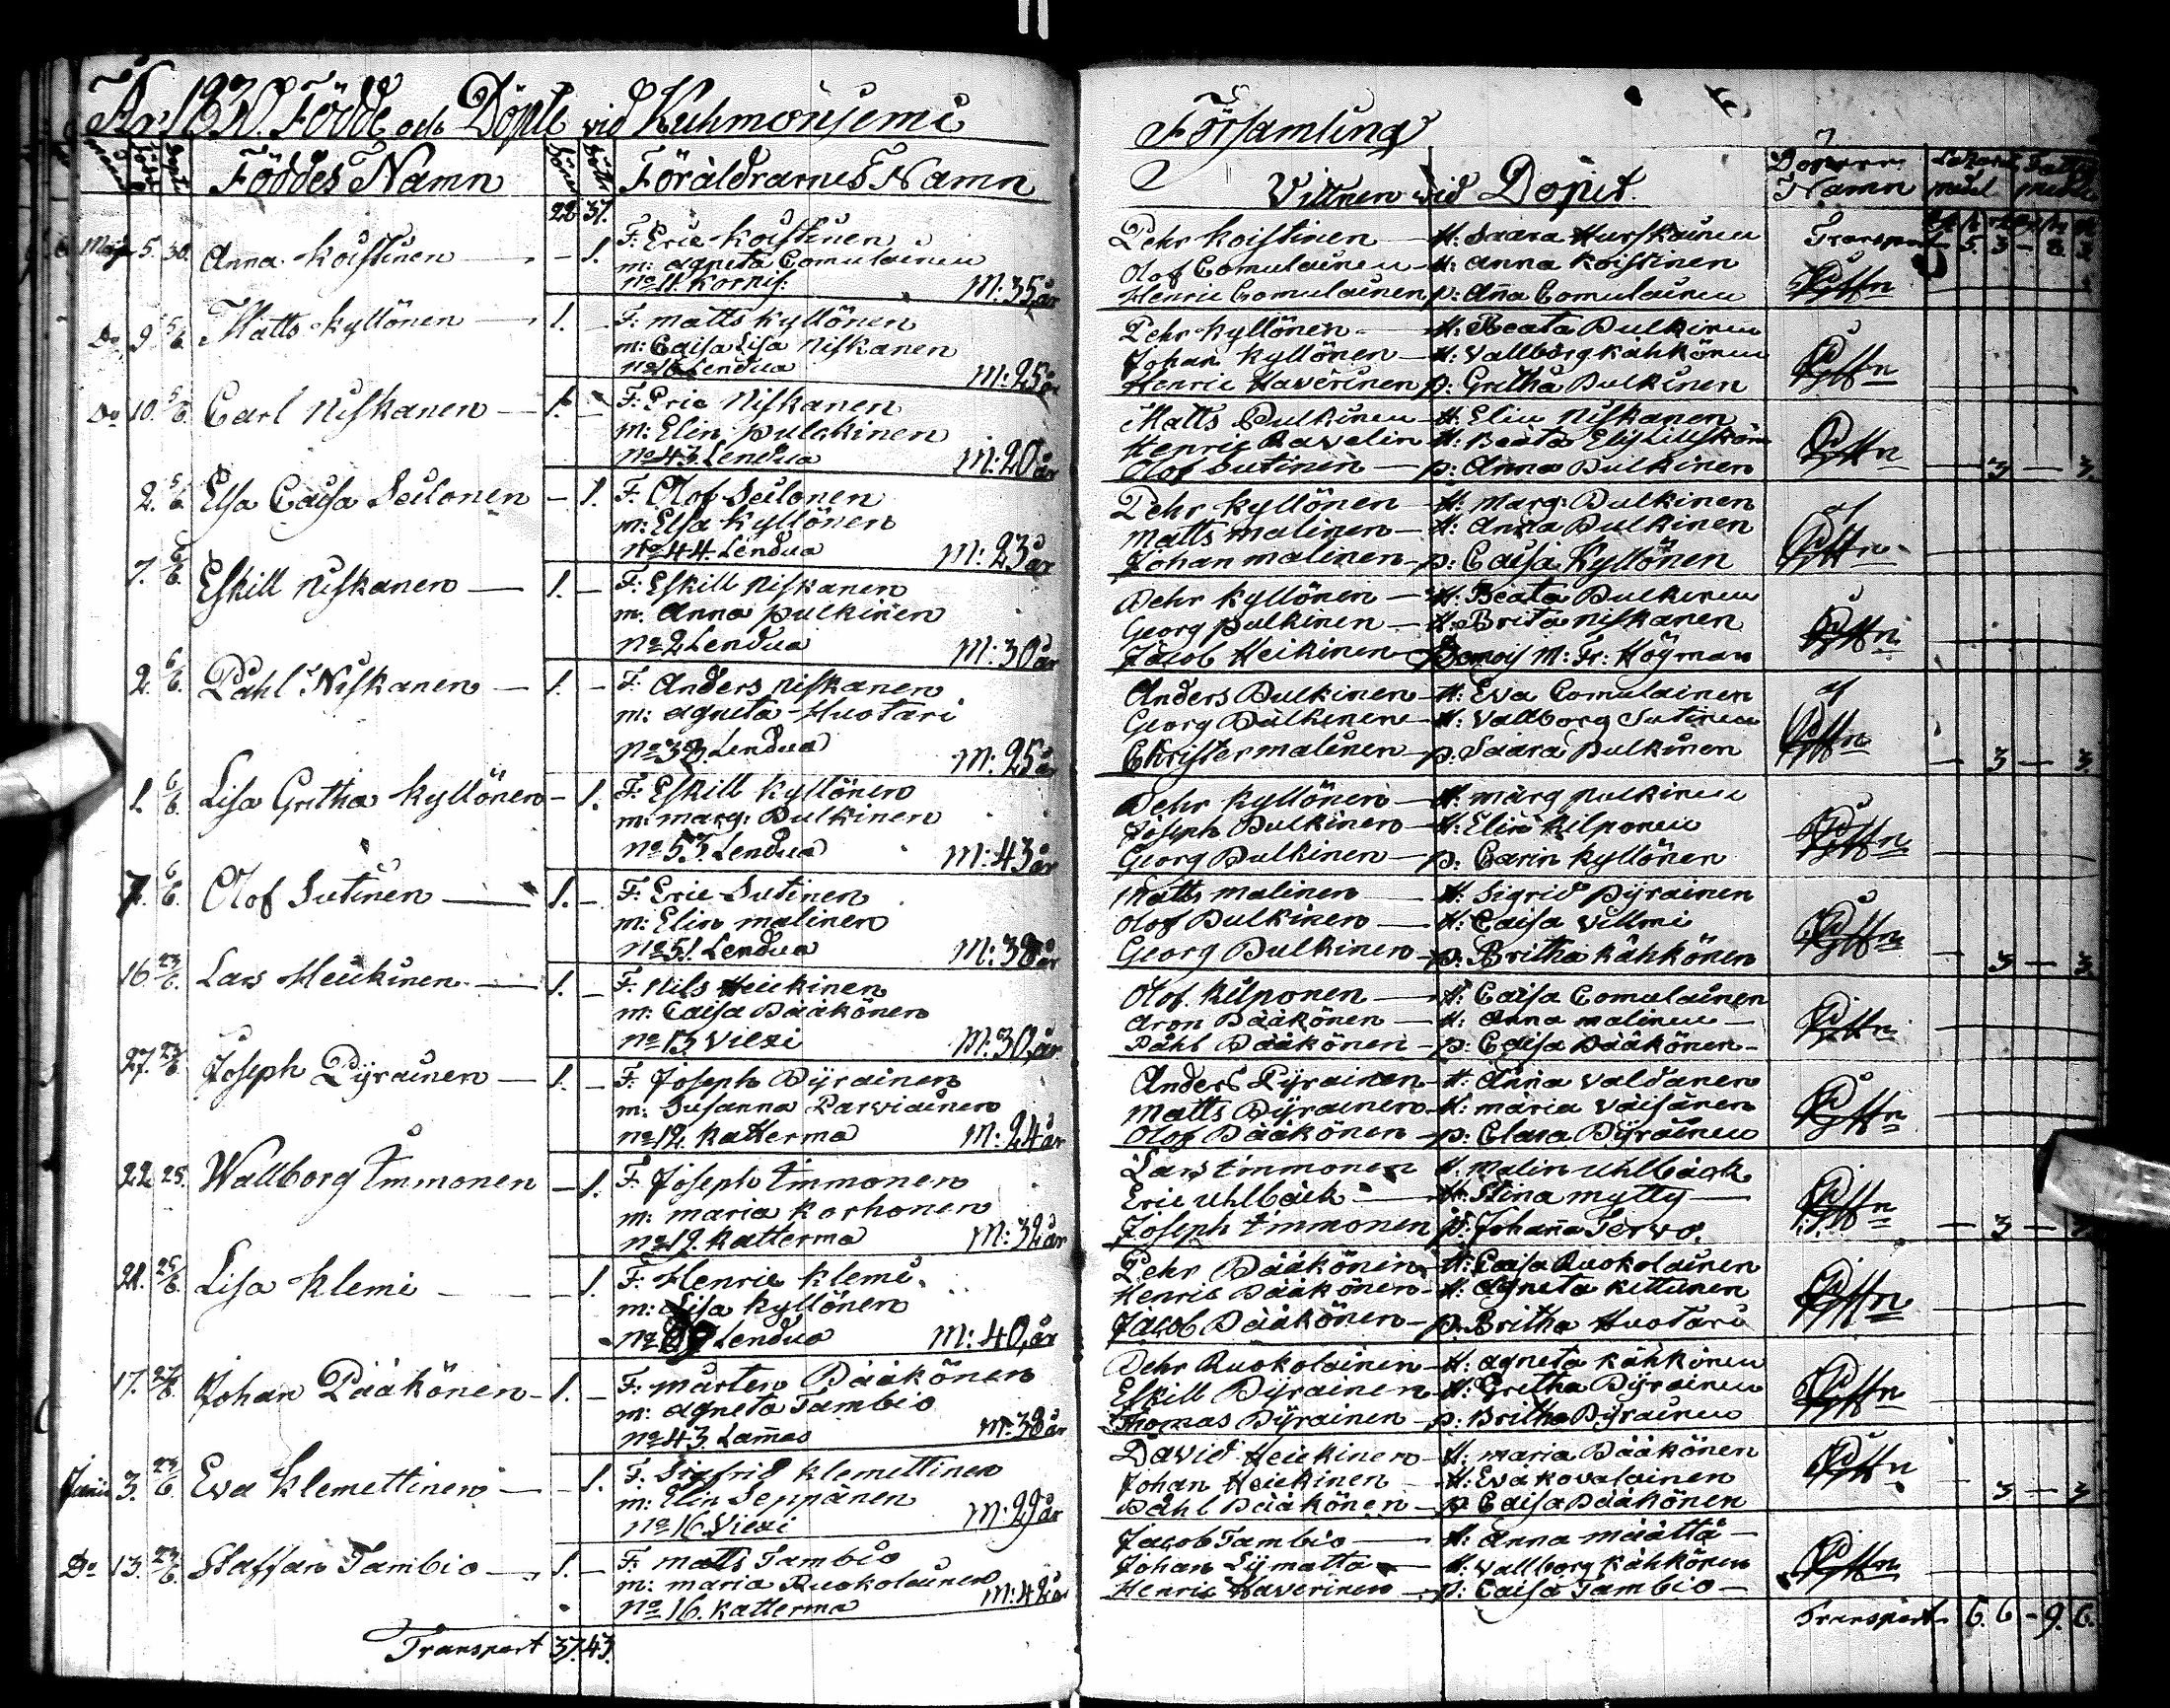 År 1830. Födde och Döpte vid Kuhmoniemi
Församling
Födde Döpte Föddes Namn Söner Döttr Föräldrarnes Namn
Vittnen vid Dopet. Namn
22 37.
Transport 5. 3 – 8. 3
Maji 5. 30. Anna Koistinen — – 1. F: Eric Koistinen
m: Agneta Comulainen
No 11. Kornis: M: 35 år
Pehr Koistinen — H: Saara Hurskainen
Olof Comulainen – H: Anna Koistinen
Henric Comulainen p: Aña Comulainen
Do 9 5/6. Matts Kyllönen — 1. – F: Matts Kyllönen
m: Caisa Lisa Niskanen
Lendua M: 25 år
Pehr Kyllönen — H: Beata Pulkinen
Johan Kyllönen – H: Vallborg Kähkönen
Henric Haverinen p: Gretha Pulkinen
Do 10. 5/6. Carl Niskanen — 1. – F: Eric Niskanen
m: Elin Pulckinen
No 43. Lendua M: 20 år
Matts Pulkinen – H: Elin Niskanen
Henric Ravelin – H: Beata
Olof Sutinen — p: Anna Pulkinen — 3 — 3.
2. 5/6. Elsa Caisa Seilonen – 1. F: Olof Seilonen
m: Elsa Kyllönen
No 44. Lendua M: 23 år
Pehr Kyllönen – H: Marg: Pulkinen
Matts Malinen – H: Anna Pulkinen
Johan Malinen – p: Caisa Kyllönen
7. 6. Eskill Niskanen — 1. – F: Eskill Niskanen
m: Anna Pulkinen
No 2 Lendua M: 30 år
Pehr Kyllönen — H: Beata Pulkinen
Georg Pulkinen – H: Brita Niskanen
Jacob Heikinen – M: Fr: Högman
2. 6/6. Påhl Niskanen — 1. – F: Anders Niskanen
m: Agneta Huotari
Lendua M: 25 år
Anders Pulkinen – H: Eva Comulainen
Georg Pulkinen – H: Vallborg Sutinen
Christer Malinen – p: Saara Pulkinen — 3 — 3.
1. 6/6. Lisa Gretha Kyllönen – 1. F: Eskill Kyllönen
m: Marg: Pulkinen
No 53. Lendua M: 43 år
Pehr Kyllönen — H: Marg Pulkinen
Joseph Pulkinen – H: Elin Kilponen
Georg Pulkinen – p: Carin Kyllönen
7. 6/6. Olof Sutinen — 1. – F: Eric Sutinen
m: Elin Malinen
No 51. Lendua M: 38 år
Matts Malinen — H: Sigrid Pyrainen
Olof Pulkinen — H: Caisa Villmi
Georg Pulkinen – p: Britha Kähkönen — 3 — 3.
16 23/6. Lars Heickinen — 1. – F: Nils Heickinen
m: Caisa Pääkönen
No 13 Viexi M: 30 år
Olof Kilponen — H: Caisa Comulainen
Aron Pääkönen – H: Anna Malinen –
Påhl Pääkönen – p: Caisa Pääkönen –
27. 23/6 Joseph Pyrainen — 1. – F: Joseph Pyrainen
m: Susanna Parviainen
No 12. Katterma M: 24 år
Anders Pyrainen – H: Anna Valdanen
Matts Pyrainen – H: Maria Väisänen
Olof Pääkönen – p: Clara Pyrainen
22 25. Wallborg Immonen – 1. F: Joseph Immonen
m: Maria Korhonen
No 19. Katterma M: 32 år
Lars Immonen H: Malin Uhlbäck
Eric Uhlbäck — H: Stina Mytty —
Joseph Immonen p: Johaña Tervo. — 3 —
21. 25/6. Lisa Klemi — – 1. F: Henric Klemi
m: Lisa Kyllönen
Lendua M: 40 år
Pehr Pääkönen – H: Caisa Ruokolainen
Henric Pääkönen – H: Agneta Kettunen
Jacob Pääkönen – p: Britha Huotari
17. Johan Pääkönen – 1. – F: Mårten Pääkönen
m: Agneta Tambio
No 43. Lam̃as M: 38 år
Pehr Ruokolainen – H: Agneta Kähkönen
Eskill Pyrainen – H: Gretha Pyrainen
Thomas Pyrainen – p: Britha Pyrainen
Junii 3. 23/6. Eva Klemettinen — – 1. F: Sigfrid Klemettinen
m: Elin Seppänen
No 16. Viexi M: 29 år
David Heickinen – H: Maria Pääkönen
Johan Heickinen – H: Eva Kovalainen
Påhl Pääkönen – p: Caisa Pääkönen 3 — 3
Do 13. 23/6. Staffan Tambio — 1. – F: Matts Tambio
m: Maria Ruokolainen
No 16. Katterma M: 42 år
Jacob Tambio — H: Anna Määttä –
Johan Lymatta – H: Vallborg Kähkönen
Henric Haverinen – p: Caisa Tambio –
Transport 37. 43.
Transport. 6. 6 – 9. 6.